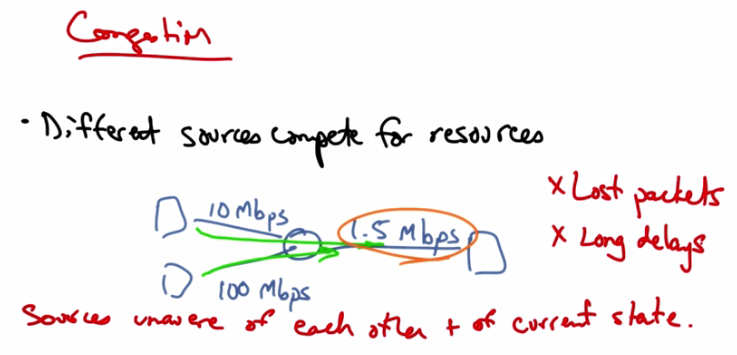 Congestion
· Different sources compete for resources
10 Mbps
1.5 Mbps
100 Mbps
X Lost packets
X Long delays
Sources unaware of each other + of current state.